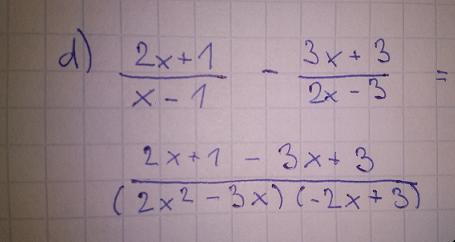 d) \frac{2x+1}{x-1} - \frac{3x+3}{2x-3} =
\frac{2x+1-3x+3}{(2x^2-3x)(-2x+3)}